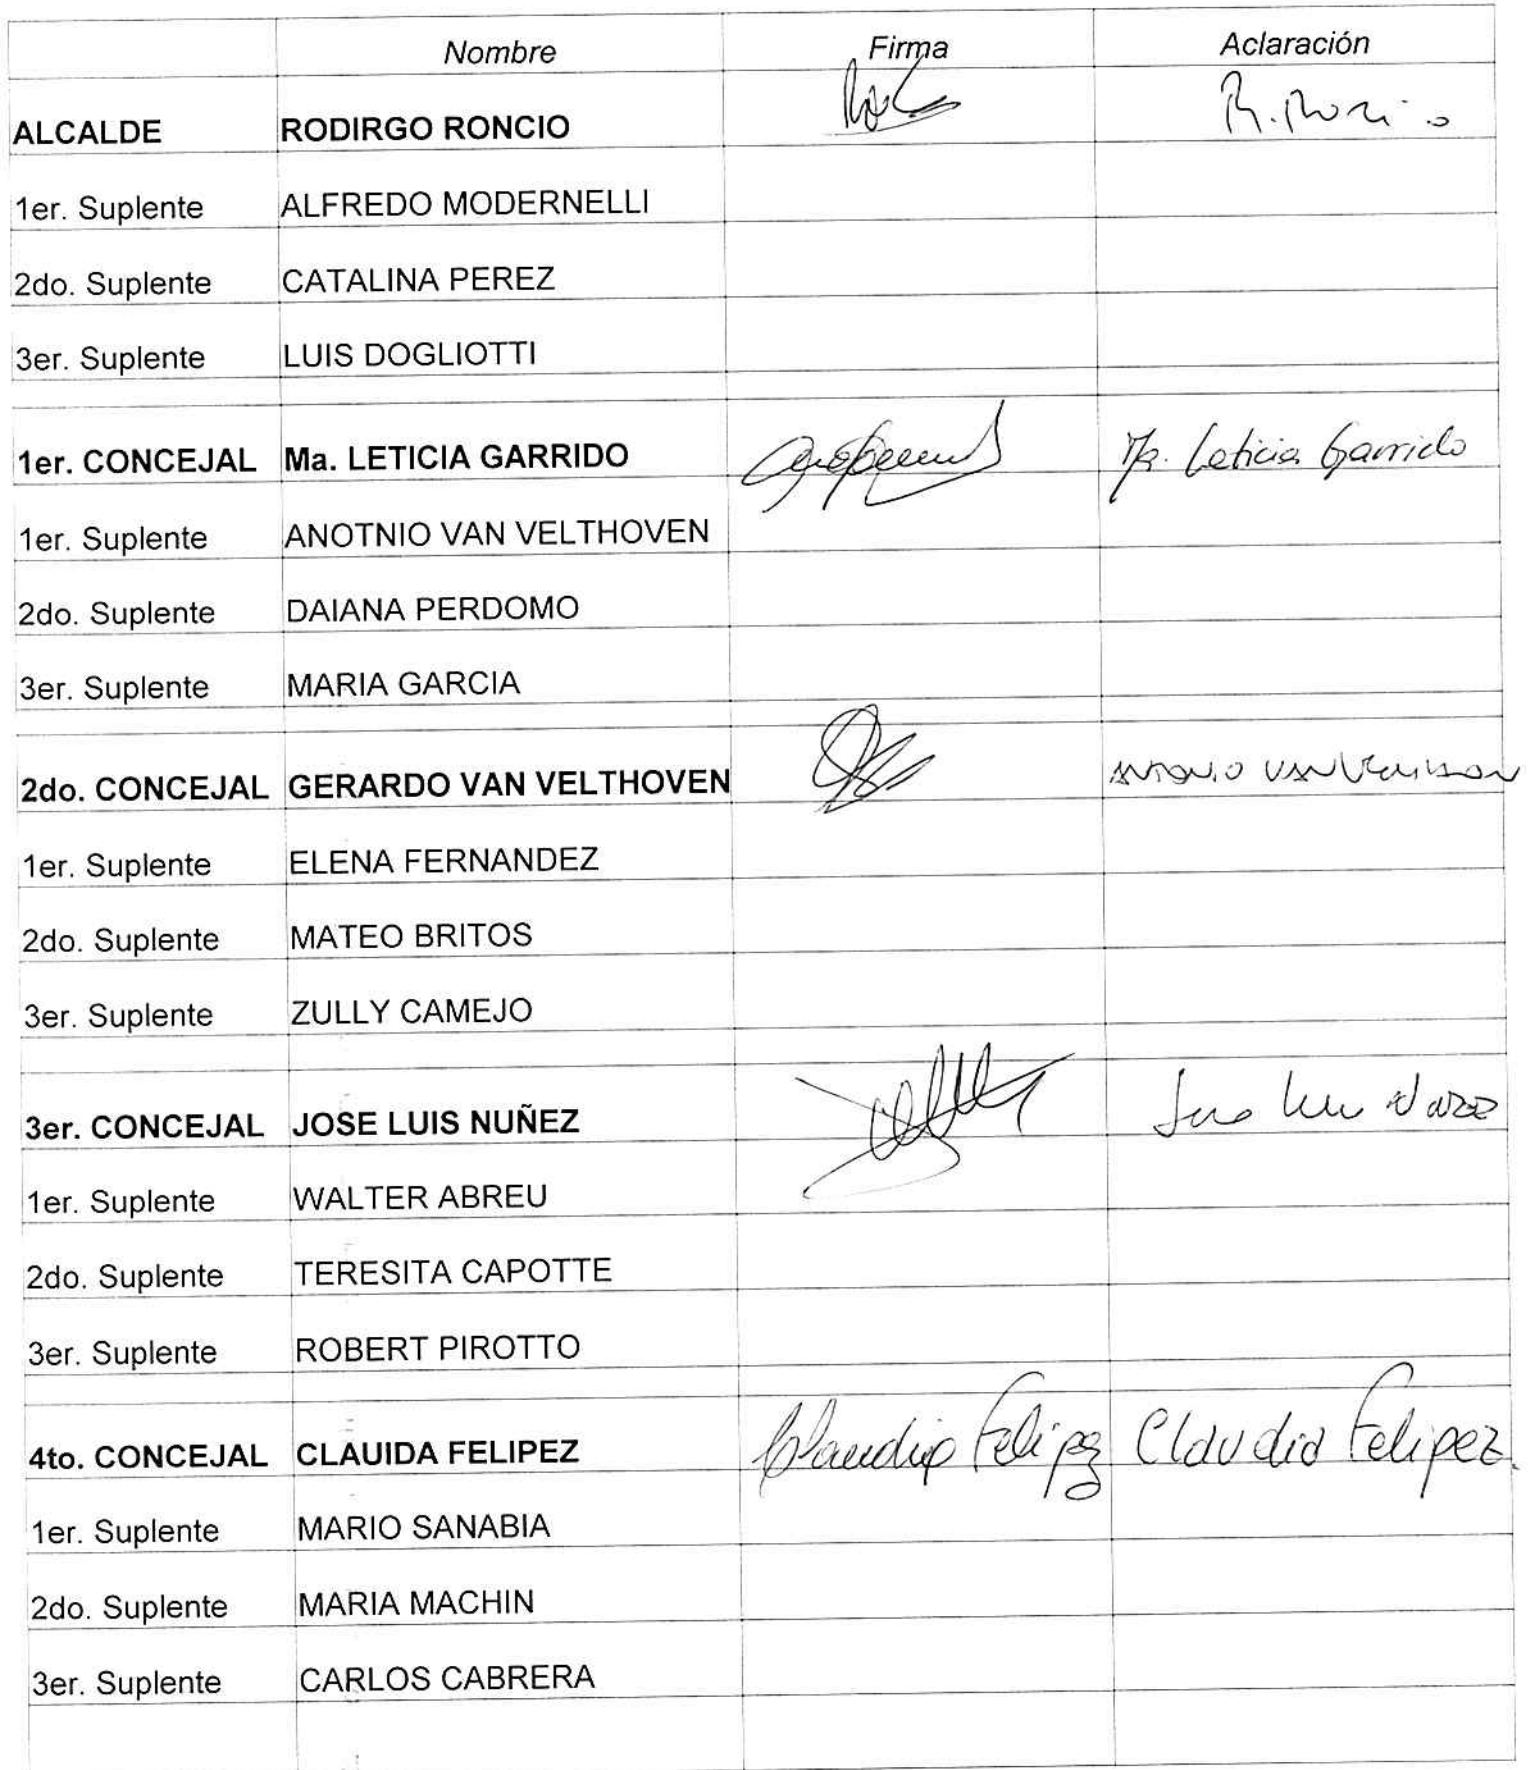 Nombre Firma Aclaración
ALCALDE RODIRGO RONCIO R. Roncio
1er. Suplente ALFREDO MODERNELLI
2do. Suplente CATALINA PEREZ
3er. Suplente LUIS DOGLIOTTI
1er. CONCEJAL Ma. LETICIA GARRIDO Ma. Leticia Garrido
1er. Suplente ANOTNIO VAN VELTHOVEN
2do. Suplente DAIANA PERDOMO
3er. Suplente MARIA GARCIA
2do. CONCEJAL GERARDO VAN VELTHOVEN ANTONIO VAN VELTHOVEN
1er. Suplente ELENA FERNANDEZ
2do. Suplente MATEO BRITOS
3er. Suplente ZULLY CAMEJO
3er. CONCEJAL JOSE LUIS NUÑEZ Jose Luis
1er. Suplente WALTER ABREU
2do. Suplente TERESITA CAPOTTE
3er. Suplente ROBERT PIROTTO
4to. CONCEJAL CLAUIDA FELIPEZ Claudia Felipez Claudia Felipez.
1er. Suplente MARIO SANABIA
2do. Suplente MARIA MACHIN
3er. Suplente CARLOS CABRERA